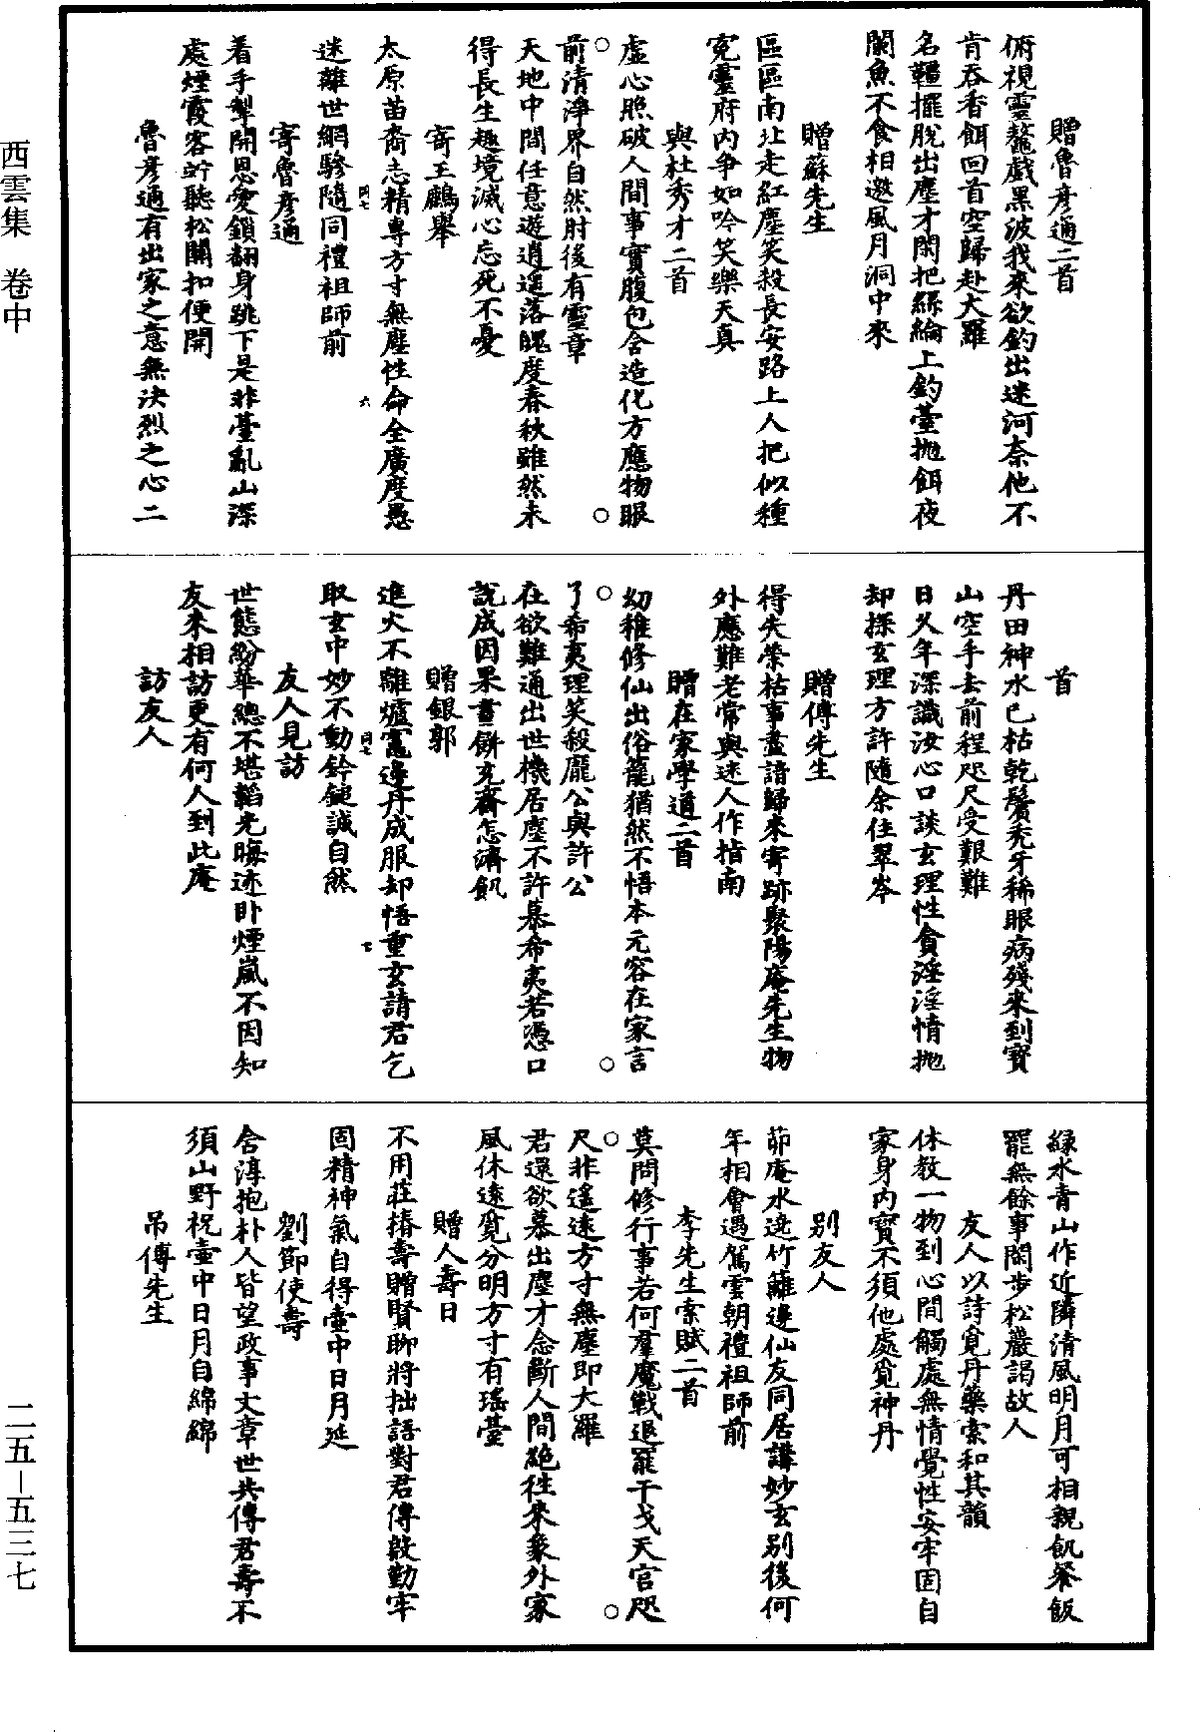 贈魯彥通二首
俯視靈鼇戲黑波我來欲釣出迷河奈他不
肯吞香餌回首空歸赴大羅
名韁擺脫出塵才閑把絲綸上釣臺拋餌夜
闌魚不食相邀風月洞中來
贈蘇先生
區區南北走紅塵笑殺長安路上人把似種
寃靈府內爭如吟笑樂天真
與杜秀才二首
虛心照破人間事實腹包含造化方應物眼
前清淨界自然肘後有靈章
○ ○
天地中間任意遊逍遥落魄度春秋雖然未
得長生趣境滅心忘死不憂
寄王鵬舉
太原苗裔志精專方寸無塵性命全廣度愚
同七 六
迷離世網驂隨同禮祖師前
寄魯彥通
着手掣開恩愛鎖翻身跳下是非臺亂山深
處煙霞客竚聽松關扣便開
魯彥通有出家之意無決烈之心二
首
丹田神水已枯乾鬢禿牙稀眼病殘來到寶
山空手去前程咫尺受艱難
日久年深識汝心口談玄理性貪淫淫情拋
却採玄理方許隨余住翠岑
贈傅先生
得失榮枯事盡諳歸來寄跡聚陽庵先生物
外應難老常與迷人作指南
贈在家學道二首
幼稚修仙出俗籠猶然不悟本元容在家言
了希夷理笑殺龐公與許公
○ ○
在欲難通出世機居塵不許慕希夷若憑口
說成因果畫餅充齋怎濟飢
贈銀郭
進火不離爐竈邊丹成服却悟重玄請君乞
同七 七
取玄中妙不動鈐鎚誠自然
友人見訪
世態紛華總不堪韜光晦迹卧煙嵐不因知
友來相訪更有何人到此庵
訪友人
綠水青山作近隣清風明月可相親飢餐飯
罷無餘事閑步松巖謁故人
友人以詩覓丹藥索和其韻
休教一物到心間觸處無情覺性安牢固自
家身內寶不須他處覓神丹
别友人
茆庵水遶竹籬邊仙友同居講妙玄别後何
年相會遇駕雲朝禮祖師前
李先生索賦二首
莫問修行事若何羣魔戰退罷干戈天官咫
尺非遥遠方寸無塵即大羅
○ ○
君還欲慕出塵才念斷人間絶往來象外家
風休遠覓分明方寸有瑤臺
贈人壽日
不用莊椿壽贈賢聊將拙語對君傳殷勤牢
固精神氣自得壺中日月延
劉節使壽
含淳抱朴人皆望政事文章世共傳君壽不
須山野祝壺中日月自綿綿
吊傅先生
西雲集 卷中
二五－五三七